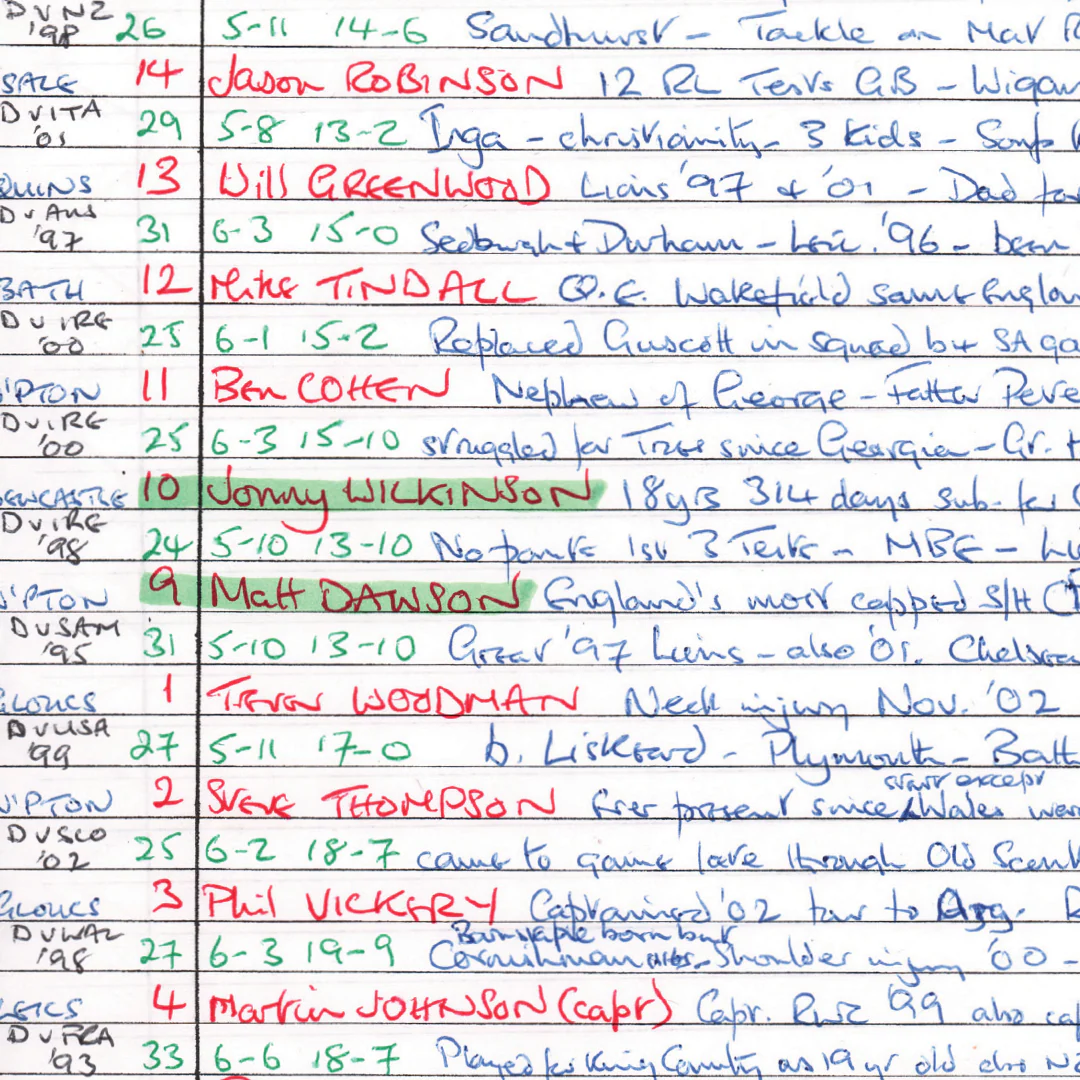 DVNZ '98 26 5-11 14-6 Sandhurst - Tackle on Mat R
SALE 14 Jason ROBINSON 12 RL Tests GB - Wigan
DVITA '01 29 5-8 13-2 Inga - christianity - 3 kids - Song
QUINS 13 Will GREENWOOD Lions '97 & '01 - Dad for
DvAus '97 31 6-3 15-0 Sedburgh & Durham - Leic. '96 - been
BATH 12 Mike TINDALL Q.E. Wakefield same Englan
DvIRE '00 25 6-1 15-2 Replaced Guscott in squad b4 SA ga
N'PTON 11 Ben COHEN Nephew of George - Father Pete
DvIRE '00 25 6-3 15-10 struggled for Tries since Georgia - Gr.
NEWCASTLE 10 Jonny WILKINSON 18yrs 314 days sub. for
DvIRE '98 24 5-10 13-10 No points 1st 3 Tests - MBE -
N'PTON 9 Matt DAWSON England's most capped S/H
DvSAM '95 31 5-10 13-10 Great '97 Lions - also '01. Chelsea
GLOUCS 1 Trevor WOODMAN Neck injury Nov. '02
DvUSA '99 27 5-11 17-0 b. Liskeard - Plymouth - Bath
start except
N'PTON 2 Steve THOMPSON Ever present since Wales
DvSCO '02 25 6-2 18-7 came to game late through Old Scou
GLOUCS 3 Phil VICKERY Captained '02 tour to Arg.
Barnstaple born but
DvWAL '98 27 6-3 19-9 Cornishman Shoulder injury '00 -
LEICS 4 Martin JOHNSON (capt) Capt. RWC '99 also cap
DvFRA '93 33 6-6 18-7 Played for King Country as 19 yr old also NZ